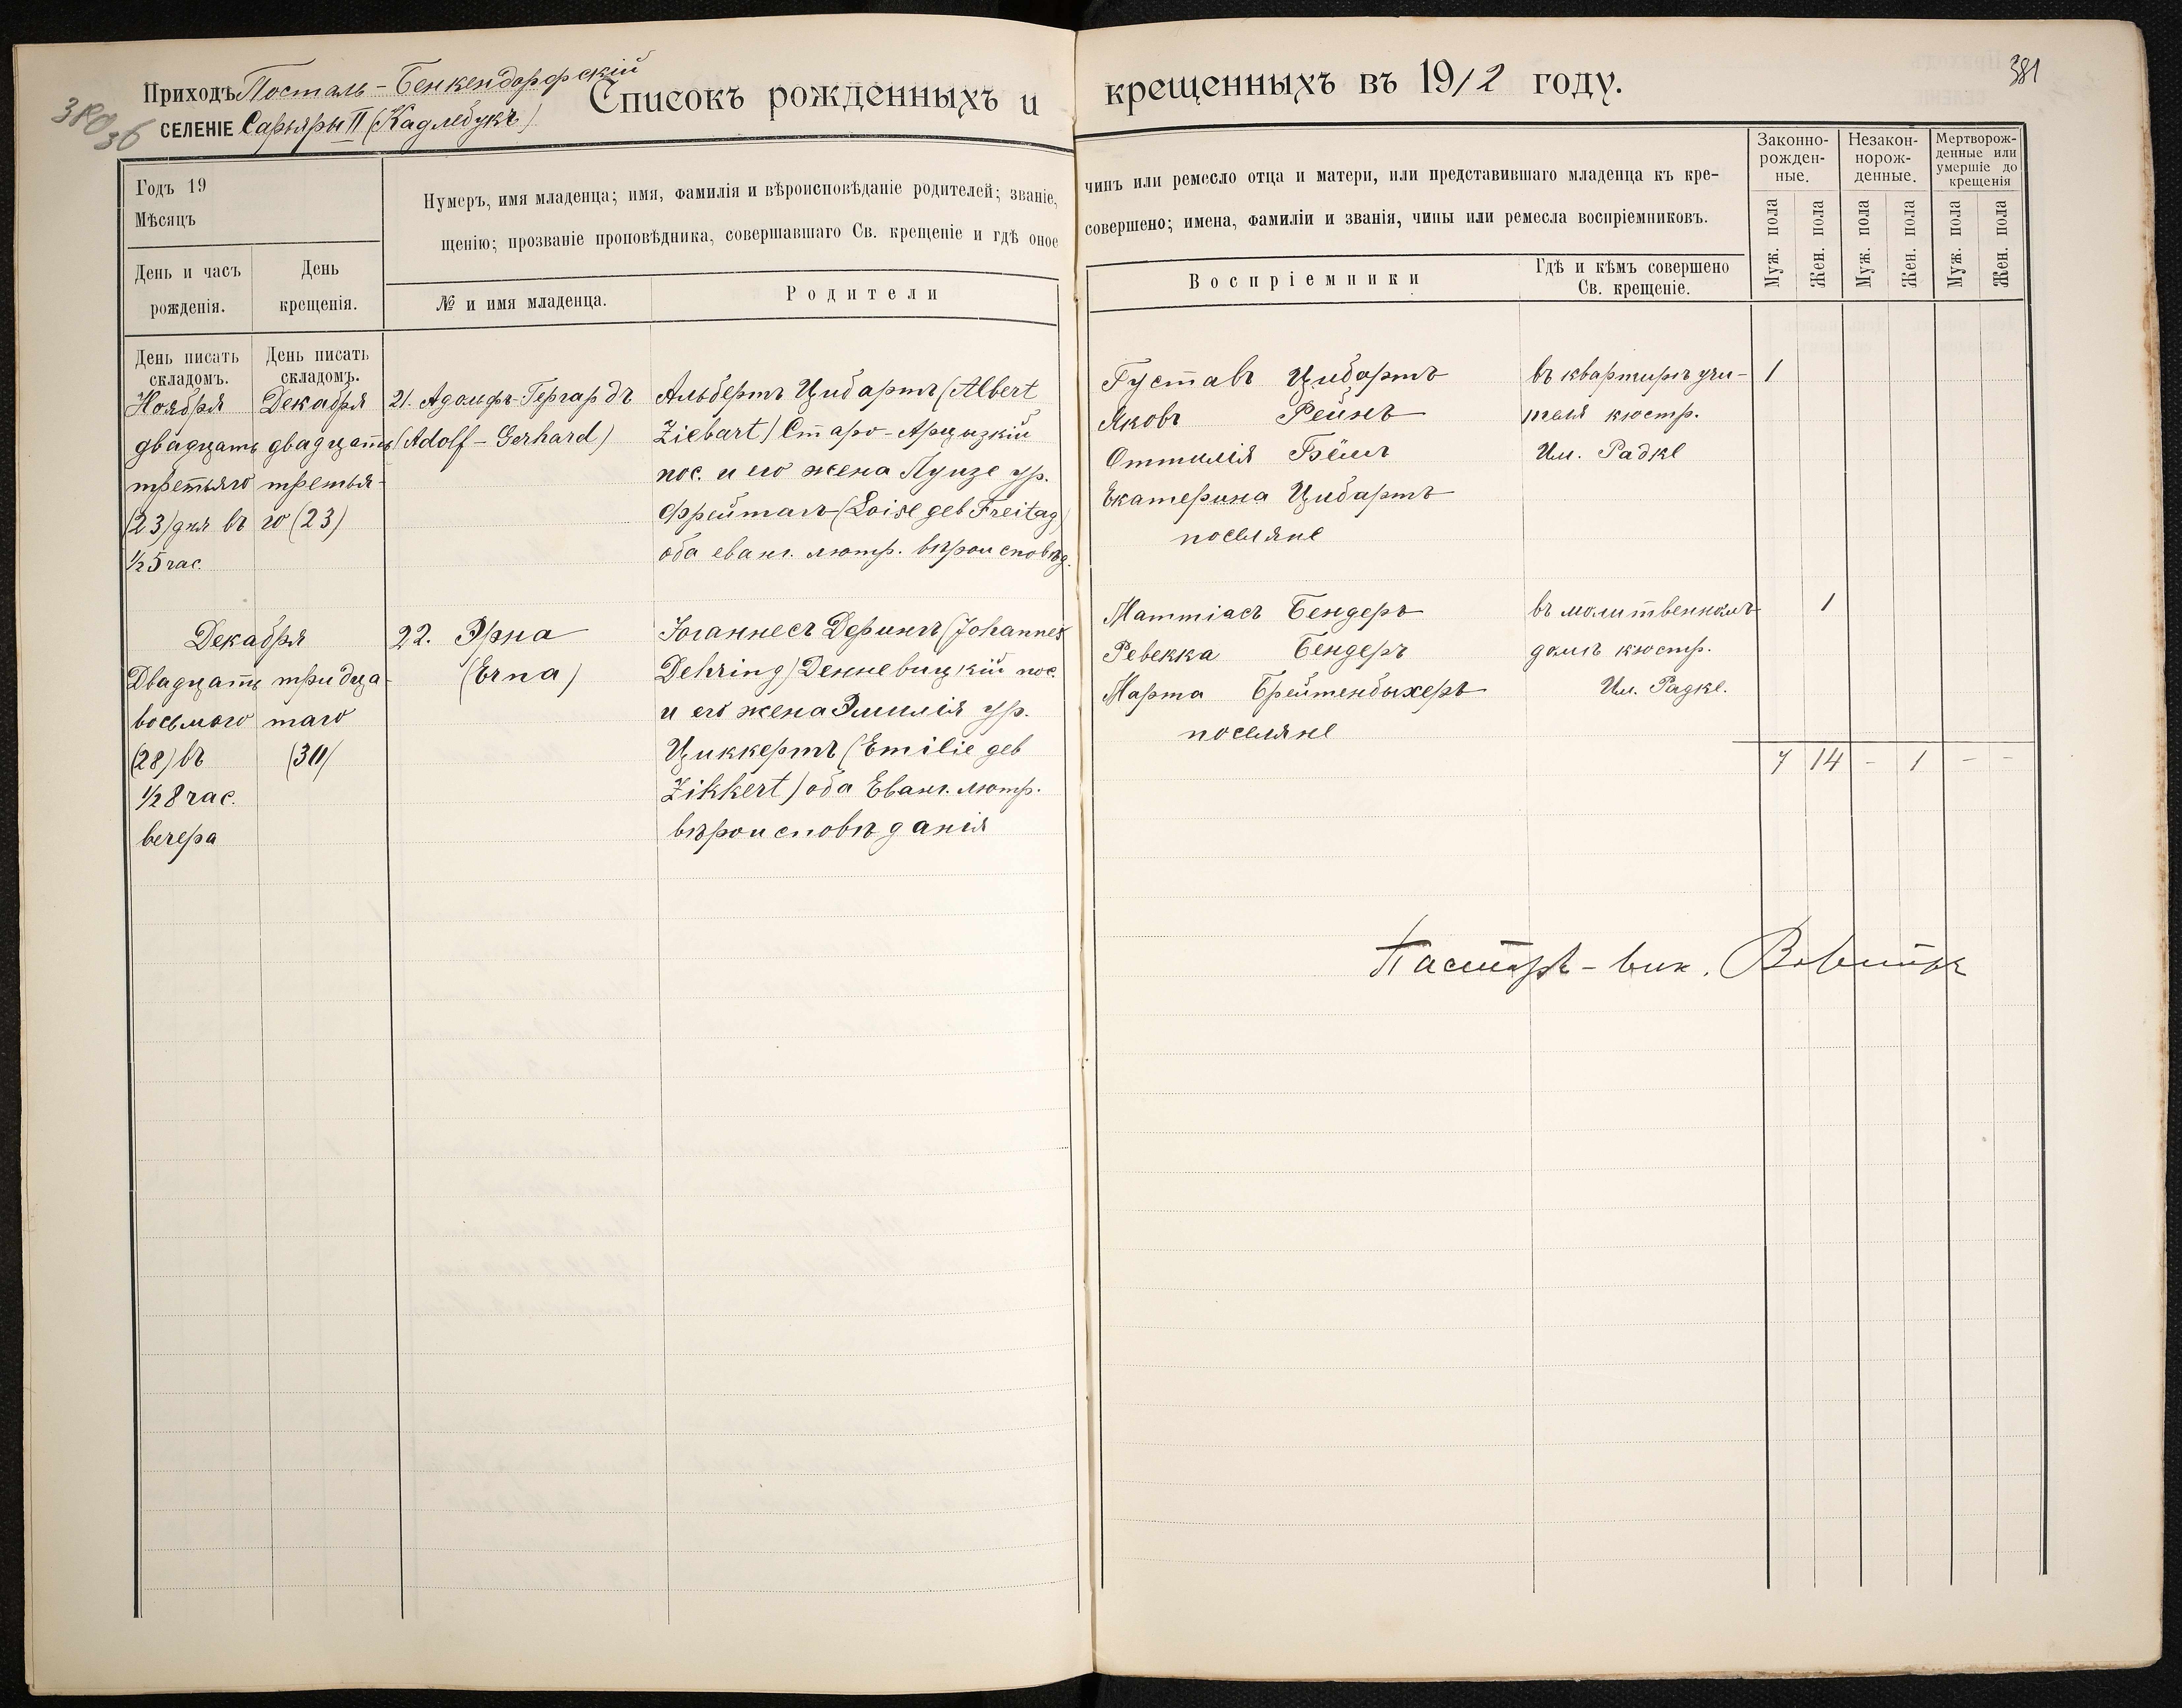 Приходъ Посталь-Бенкендорфскій
селеніе Сарьяры II (Кадлебукъ)
Списокъ рожденныхъ и крещенныхъ въ 1912 году.
381
380
36
Годъ 19
Мѣсяцъ
День и часъ
рожденія.
День
крещенія.
Нумеръ, имя младенца; имя, фамилія и вѣроисповѣданіе родителей; званіе,
щенію; прозваніе проповѣдника, совершавшаго Св. крещеніе и гдѣ оное
№ и имя младенца.
Родители
чинъ или ремесло отца и матери, или представившаго младенца къ кре-
совершено; имена, фамиліи и званія, чины или ремесла воспріемниковъ.
Воспріемники
Гдѣ и кѣмъ совершено
Св. крещеніе.
Законно-
рожден-
ные.
Незакон-
норож-
денные.
Мертворож-
денные или
умершіе до
крещенія
Муж. пола
Жен. пола
Муж. пола
Жен. пола
Муж. пола
Жен. пола
День писать
складомъ.
День писать
складомъ.
Ноября
двадцать
третьяго
(23) дня въ
½ 5 час.
Декабря
двадцать
третья-
го (23)
21. Адольфъ-Гергардъ
(Adolf-Gerhard)
Альбертъ Цибартъ (Albert
Ziebart) Старо-Арцизкій
пос. и его жена Луизе ур.
Фрейтагъ (Loise geb Freitag)
оба еванг. лютр. вѣроисповѣд.
Густавъ Цибартъ
Яковъ Рейнъ
Оттилія Бёмъ
Екатерина Цибартъ
поселяне
въ квартирѣ учи-
теля кюстр.
Им. Радке
1
Декабря
Двадцать
восьмого
(28) въ
½ 8 час.
вечера
тридца-
таго
(30)
22. Эрна
(Erna)
Іоганнесъ Дерингъ (Johannes
Dehring) Денневицкій пос.
и его жена Эмилія ур.
Циккертъ (Emilie geb
Zikkert) оба Еванг. лютр.
вѣроисповѣданія
Маттіасъ Бендеръ
Ревекка Бендеръ
Марта Брейтенбихеръ
поселяне
въ молитвенномъ
домѣ кюстр.
Им. Радке.
1
7 14 - 1 - -
Пасторъ-вик.